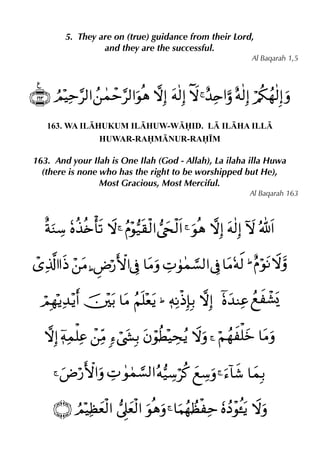 5. They are on (true) guidance from their Lord,
and they are the successful.
Al Baqarah 1,5
وَإِلَٰهُكُمْ إِلَٰهٌ وَّاحِدٌ ۚ لَآ إِلَٰهَ إِلَّا هُوَ الرَّحْمَٰنُ الرَّحِيْمُ ﴿١٦٣﴾
163. WA ILĀHUKUM ILĀHUW-WĀḤID. LĀ ILĀHA ILLĀ
HUWAR-RAḤMĀNUR-RAḤĪM
163. And your Ilah is One Ilah (God - Allah), La ilaha illa Huwa
(there is none who has the right to be worshipped but He),
Most Gracious, Most Merciful.
Al Baqarah 163
اَللّٰهُ لَآ إِلَٰهَ إِلَّا هُوَ ۚ اَلْحَيُّ الْقَيُّوْمُ ۚ لَا تَأْخُذُهُ سِنَةٌ
وَّلَا نَوْمٌ ؕ لَهُ مَا فِي السَّمٰوٰتِ وَمَا فِي الْأَرْضِ ؕ مَنْ ذَا الَّذِيْ
يَشْفَعُ عِنْدَهُ إِلَّا بِإِذْنِهِ ؕ يَعْلَمُ مَا بَيْنَ أَيْدِيْهِمْ
وَمَا خَلْفَهُمْ ۚ وَلَا يُحِيْطُوْنَ بِشَيْءٍ مِّنْ عِلْمِهِ إِلَّا
بِمَا شَآءَ ۚ وَسِعَ كُرْسِيُّهُ السَّمٰوٰتِ وَالْأَرْضَ ۚ
وَلَا يَئُوْدُهُ حِفْظُهُمَا ۚ وَهُوَ الْعَلِيُّ الْعَظِيْمُ ﴿٢٥٥﴾